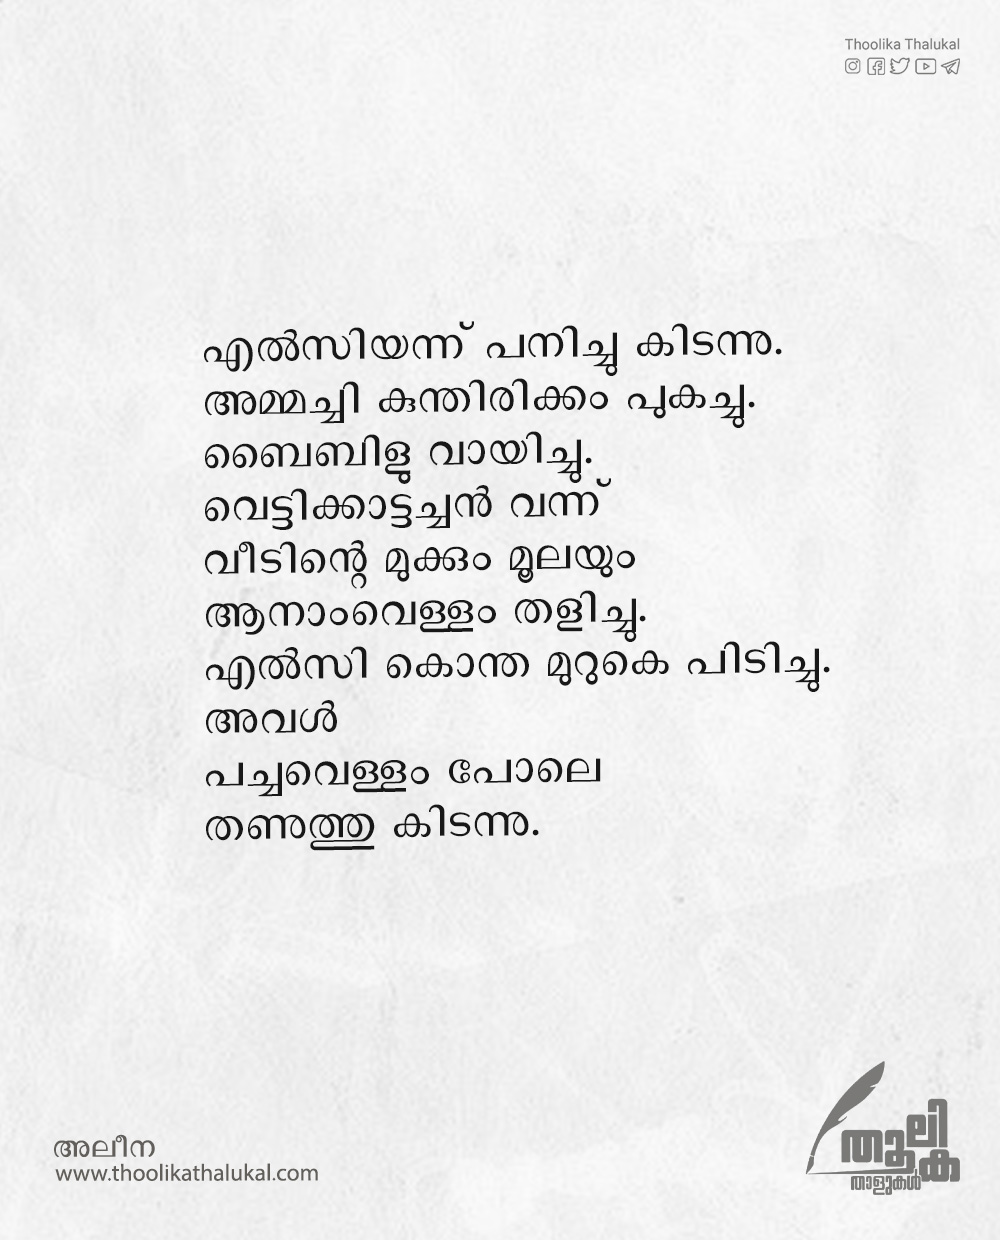 Thoolika Thalukal
എൽസിയന്ന് പനിച്ചു കിടന്നു.
അമ്മച്ചി കുന്തിരിക്കം പുകച്ചു.
ബൈബിളു വായിച്ചു.
വെട്ടിക്കാട്ടച്ചൻ വന്ന്
വീടിന്റെ മുക്കും മൂലയും
ആനാംവെള്ളം തളിച്ചു.
എൽസി കൊന്ത മുറുകെ പിടിച്ചു.
അവൾ
പച്ചവെള്ളം പോലെ
തണുത്തു കിടന്നു.
അലീന
www.thoolikathalukal.com
തൂലിക
താളുകൾ